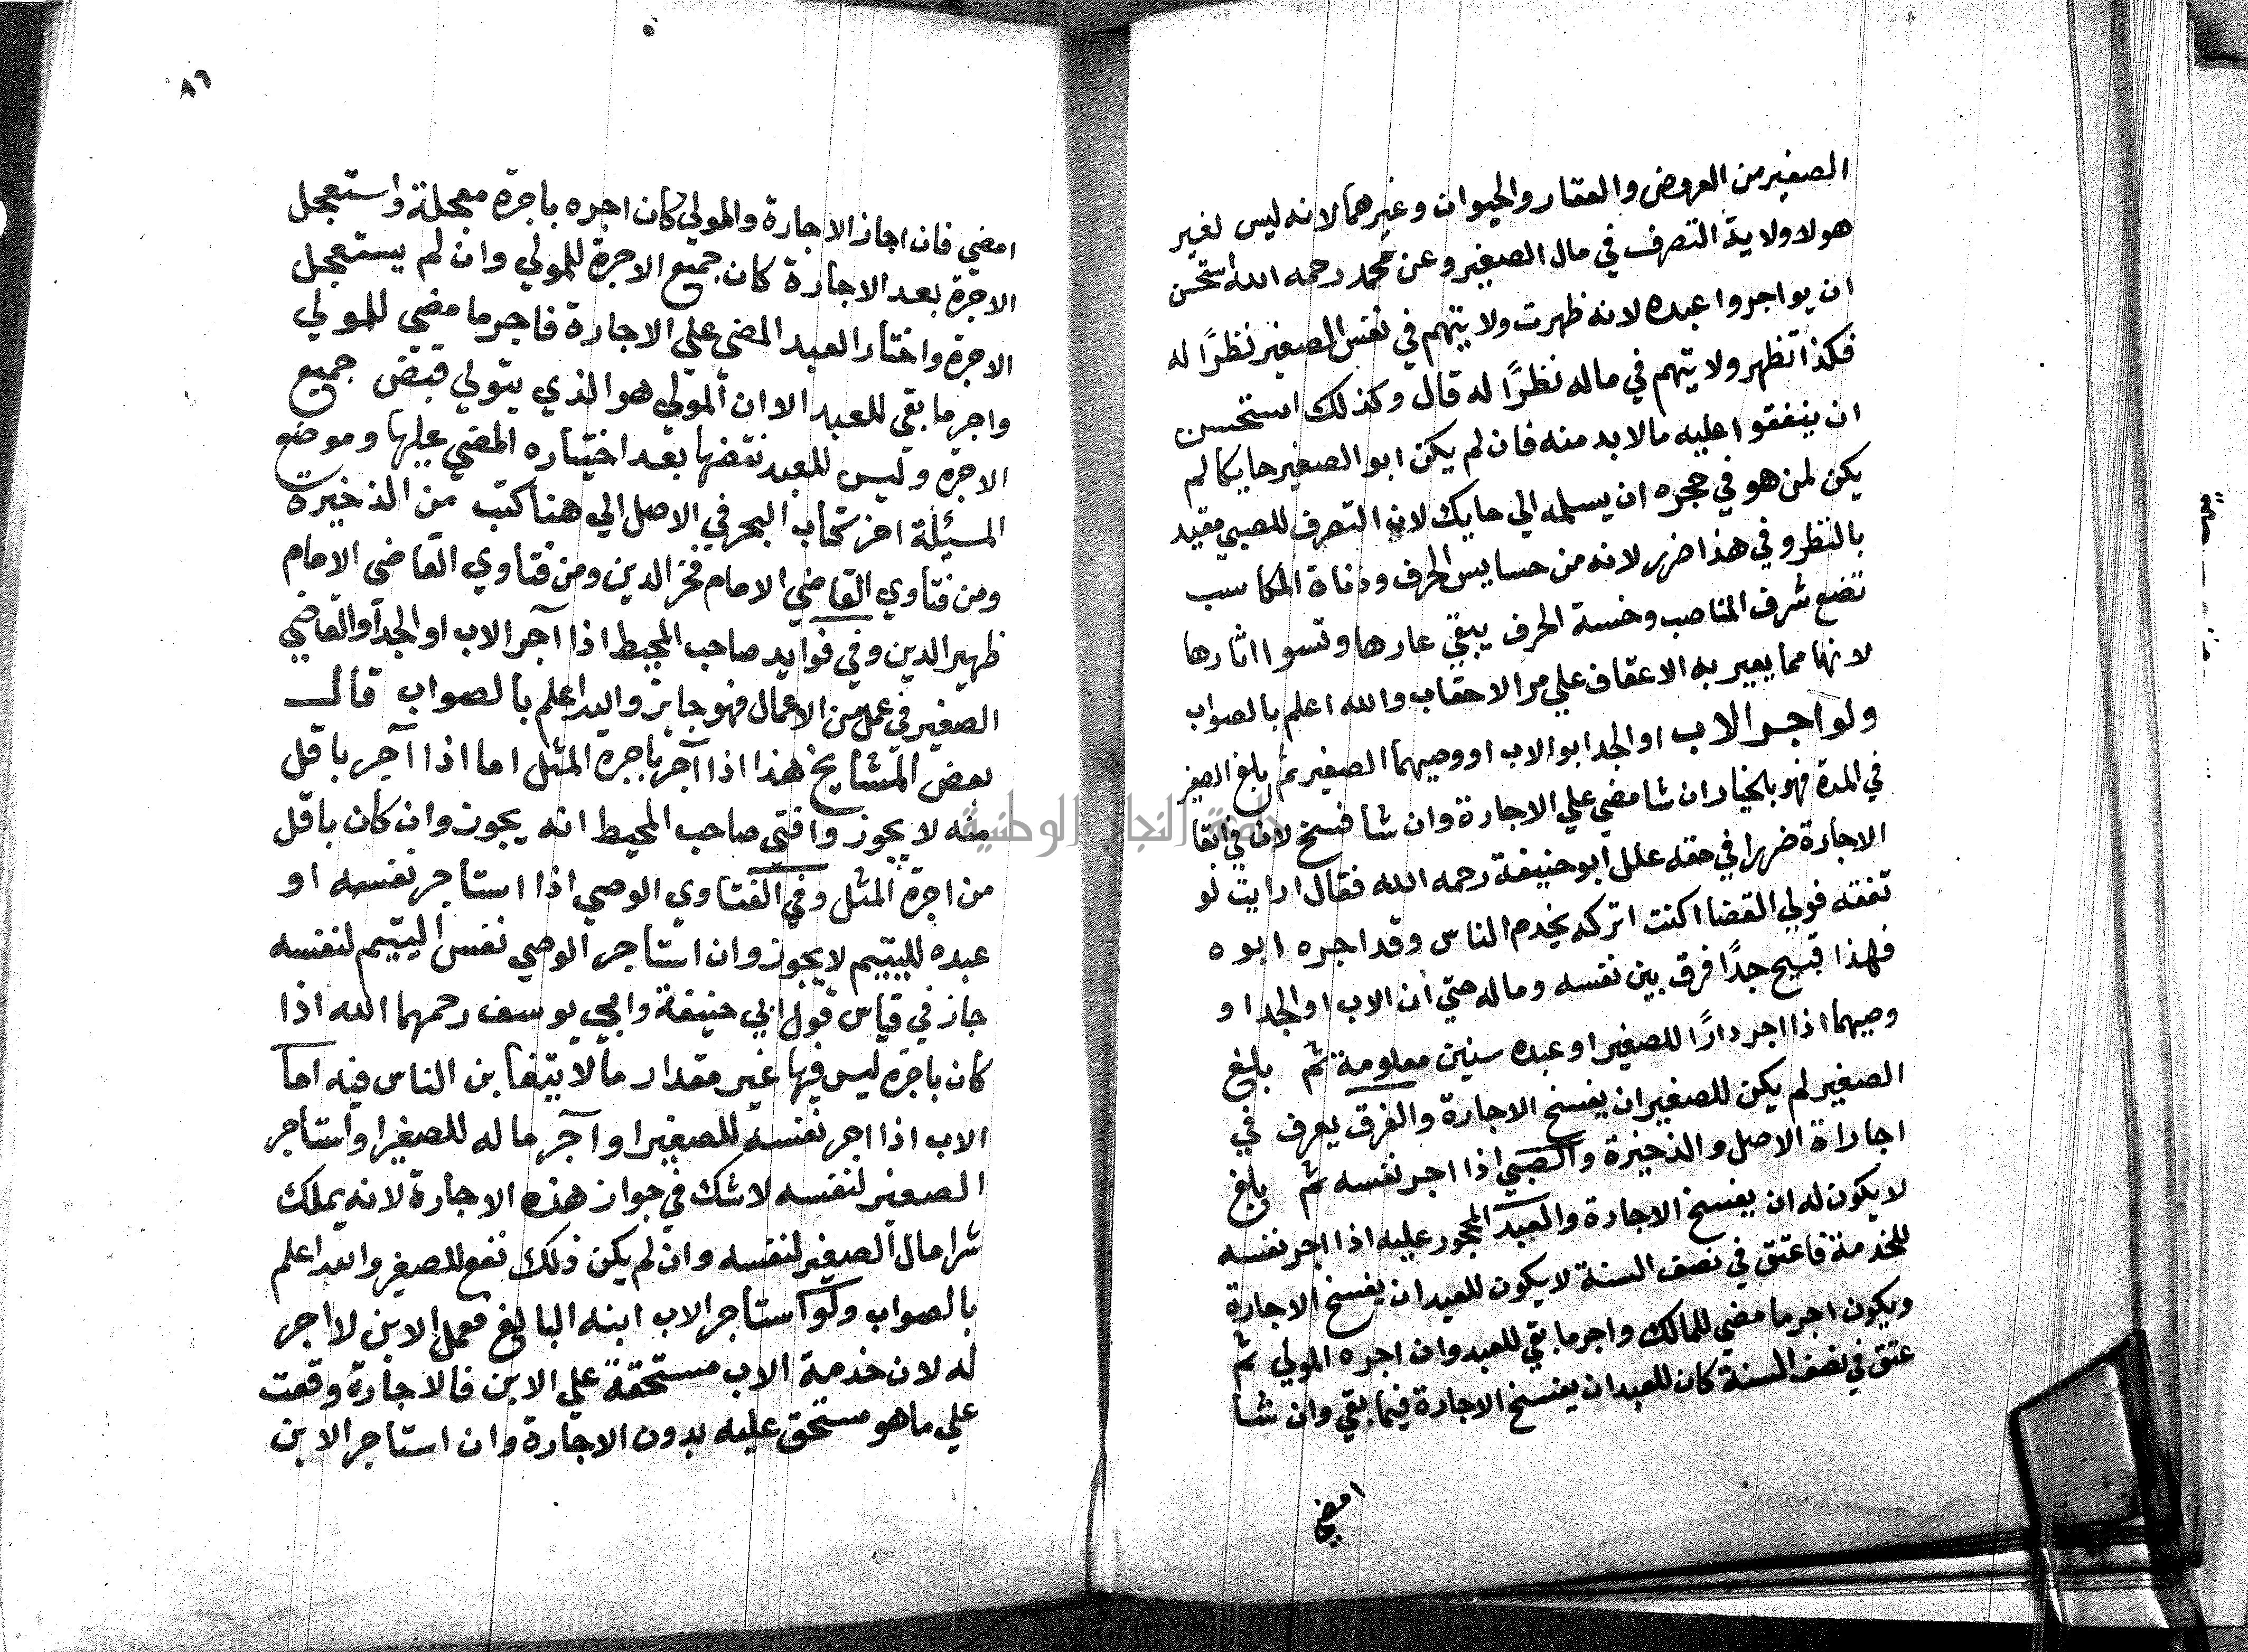 الصغير من العروض والعقار والحيوان وغيرهما لانه ليس لغير
هولا ولاية التصرف في مال الصغير وعن محمد رحمه الله استحسن
ان يواجروا عبده لانه ظهرت ولايتهم في نفس الصغير نظرًا له
فكذا تظهر ولايتهم في ماله نظرًا له قال وكذلك استحسن
ان ينفقوا عليه مالا بد منه فان لم يكن ابو الصغير حايكا لم
يكن لمن هو في حجره ان يسلمه الي حايك لان التصرف للصبي مقيد
بالنظر وفي هذا ضرر لانه من خسايس الحرف ودناة المكاسب
تضع شرف المناصب وخسة الحرف يبقي عارها وتسوا اثارها
لانها مما يعير به الاعقاف علي مر الاحقاب والله اعلم بالصواب
ولو اجر الاب او الجد ابو الاب او وصيهما الصغير ثم بلغ الصغير
في المدة فهو بالخيار ان شا مضي علي الاجارة وان شا فسخ لان في ابقا
الاجارة ضررا في حقه علل ابو حنيفة رحمه الله فقال ارايت لو
تفقه فولي القضا اكنت اتركه يخدم الناس وقد اجره ابوه
فهذا قبيح جدًا فرق بين نفسه وماله حتي ان الاب او الجد او
وصيهما اذا اجر دارًا للصغير او عبده سنين معلومة ثم بلغ
الصغير لم يكن للصغير ان يفسخ الاجارة والفرق يعرف في
اجاراة الاصل والذخيرة والصبي اذا اجر نفسه ثم بلغ
لا يكون له ان يفسخ الاجارة والعبد المحجور عليه اذا اجر نفسه
للخدمة فاعتق في نصف السنة لا يكون للعبد ان يفسخ الاجارة
ويكون اجر ما مضي للمالك واجر ما بقي للعبد وان اجره المولي ثم
عتق في نصف السنة كان للعبد ان يفسخ الاجارة فيما بقي وان شا
امضي
٨٦
امضي فان اجاز الاجارة والمولي كان اجره باجرة معجلة واستعجل
الاجرة بعد الاجارة كان جميع الاجرة للمولي وان لم يستعجل
الاجرة واختار العبد المضي علي الاجارة فاجر ما مضي للمولي
واجر ما بقي للعبد الا ان المولي هو الذي يتولي قبض جميع
الاجرة وليس للعبد نقضها بعد اختياره المضي عليها وموضع
المسئلة اخر كتاب البحر في الاصل الي هنا كتب من الذخيرة
ومن فتاوي القاضي الامام فخر الدين ومن فتاوي القاضي الامام
ظهير الدين وفي فوايد صاحب المحيط اذا آجر الاب او الجد او القاضي
الصغير في عمل من الاعمال فهو جايز والله اعلم بالصواب قال
بعض المشايخ هذا اذا آجر باجره المثل اما اذا آجر باقل
مثه لا يجوز وافتي صاحب المحيط انه يجوز وان كان باقل
من اجرة المثل وفي الفتاوي الوصي اذا استاجر نفسه او
عبده لليتيم لا يجوز وان استاجر الوصي نفس اليتيم لنفسه
جاز في قياس قول ابي حنيفة وابي يوسف رحمهما الله اذا
كان باجرة ليس فيها غير مقدار مالا يتغابن الناس فيه اما
الاب اذا اجر نفسه للصغير او آجر ماله للصغير او استاجر
الصغير لنفسه لا شك في جواز هذه الاجارة لانه يملك
شرا مال الصغير لنفسه وان لم يكن ذلك نفع للصغير والله اعلم
بالصواب ولو استاجر الاب ابنه البالغ فعمل الابن لا اجر
له لان خدمة الاب مستحقة علي الابن فالاجارة وقعت
علي ما هو مستحق عليه بدون الاجارة وان استاجر الابن
جامعة النجاح الوطنية